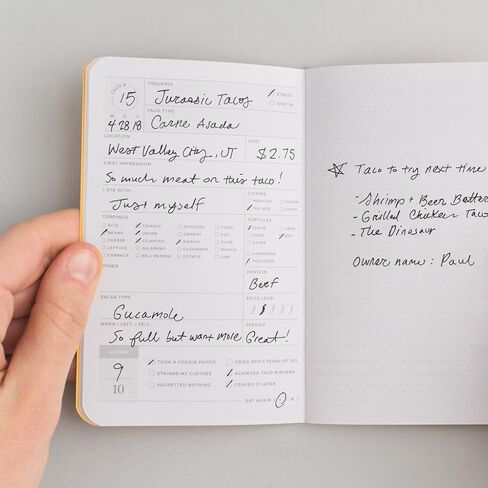 TACO # 15
TAQUERIA
Jurassic Tacos
STREET
DINE IN
TACO TYPE
M D Y
4 28 18 Carne Asada
LOCATION COST
West Valley City, UT $2.75
FIRST IMPRESSION
So much meat on this taco!
I ATE WITH...
Just myself
CUISINE
MEXICAN FUSION
TEX MEX OTHER
TOPPINGS
RICE TOMATO AVOCADO CORN
BEANS ONION CARROT EGG
CHEESE CILANTRO RADISH OLIVE
LETTUCE JALAPEÑO CUCUMBER MANGO
CABBAGE BELL PEPPER POTATO LIME
OTHER
TORTILLAS
FLOUR HARD
CORN SOFT
OTHER
HANDMADE
PACKAGED
PROTEIN
Beef
SALSA TYPE
Gucamole
SPICE LEVEL
WHEN I LEFT, I FELT... SERVICE
So full but want more Great!
RATING
9
10
TOOK A FOODIE PHOTO CRIED SPICY TEARS OF JOY
STAINED MY CLOTHES ACHIEVED TACO NIRVANA
REGRETTED NOTHING CRAVED IT LATER
EAT AGAIN Y N
Taco to try next time
- Shrimp + Beer Batter
- Grilled Chicken Taco
- The Dinosaur
Owner name: Paul